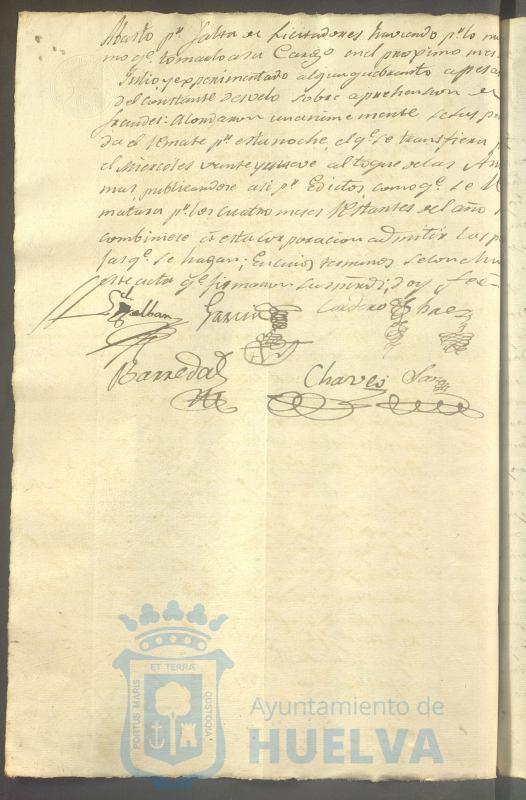 Abasto pr. falta de licitadores haviendo pr. lo
mo qe. tomarlo a su Cargo en el proximo mes
Julio, y experimentado algun quebranto apesar
del constante desvelo sobre aprehension de
fraudes: Acordaron unanimemente se sus
da el remate pr. esta noche, el qe. se transfiera
el Miercoles veinte y nueve al toque de las
mas, publicandose asi pr. Edictos como qe. se
matara pr. los cuatro meses restantes del año
combiniese á esta Corporacion admitir las
las qe. se hagan; En cuios terminos se
este acta qe. firmaron sus mrds., doy fee=
Garcia Cordero
Barreda Chaves
ET TERRÆ
PORTUS MARIS CUSTODIA
Ayuntamiento de
HUELVA